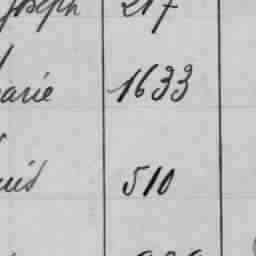 Joseph 217
arie 1633
uis 510